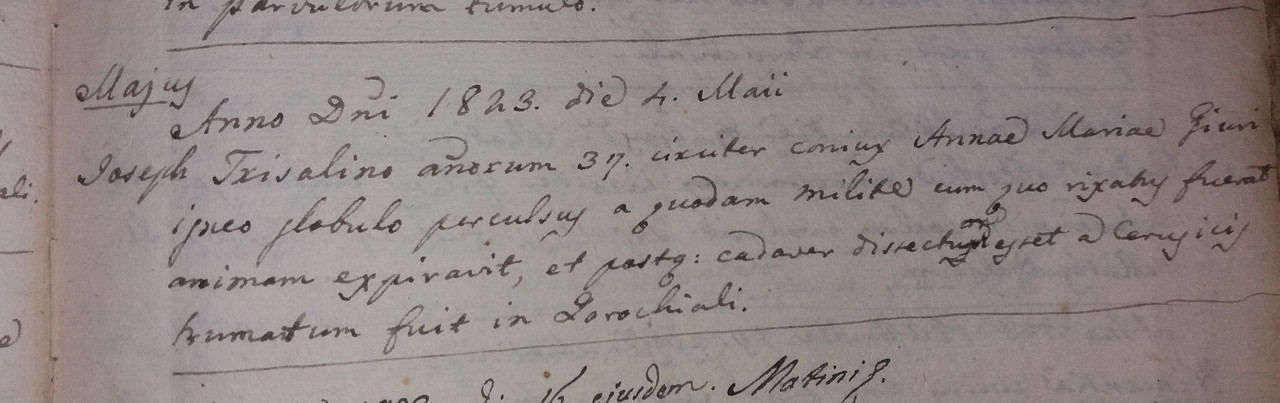 in parvulorum tumulo.
Majus
Anno Dni 1823. die 4. Maii
Joseph Trisolino anorum 37. circiter coniux Annae Mariae Giuri
igneo globulo perculsus a quodam milite cum quo rixatus fuerat
animam expiravit, et postq: cadaver dissectum esset a Cerusicis
humatum fuit in Parochiali.
16 ejusdem. Matinis.